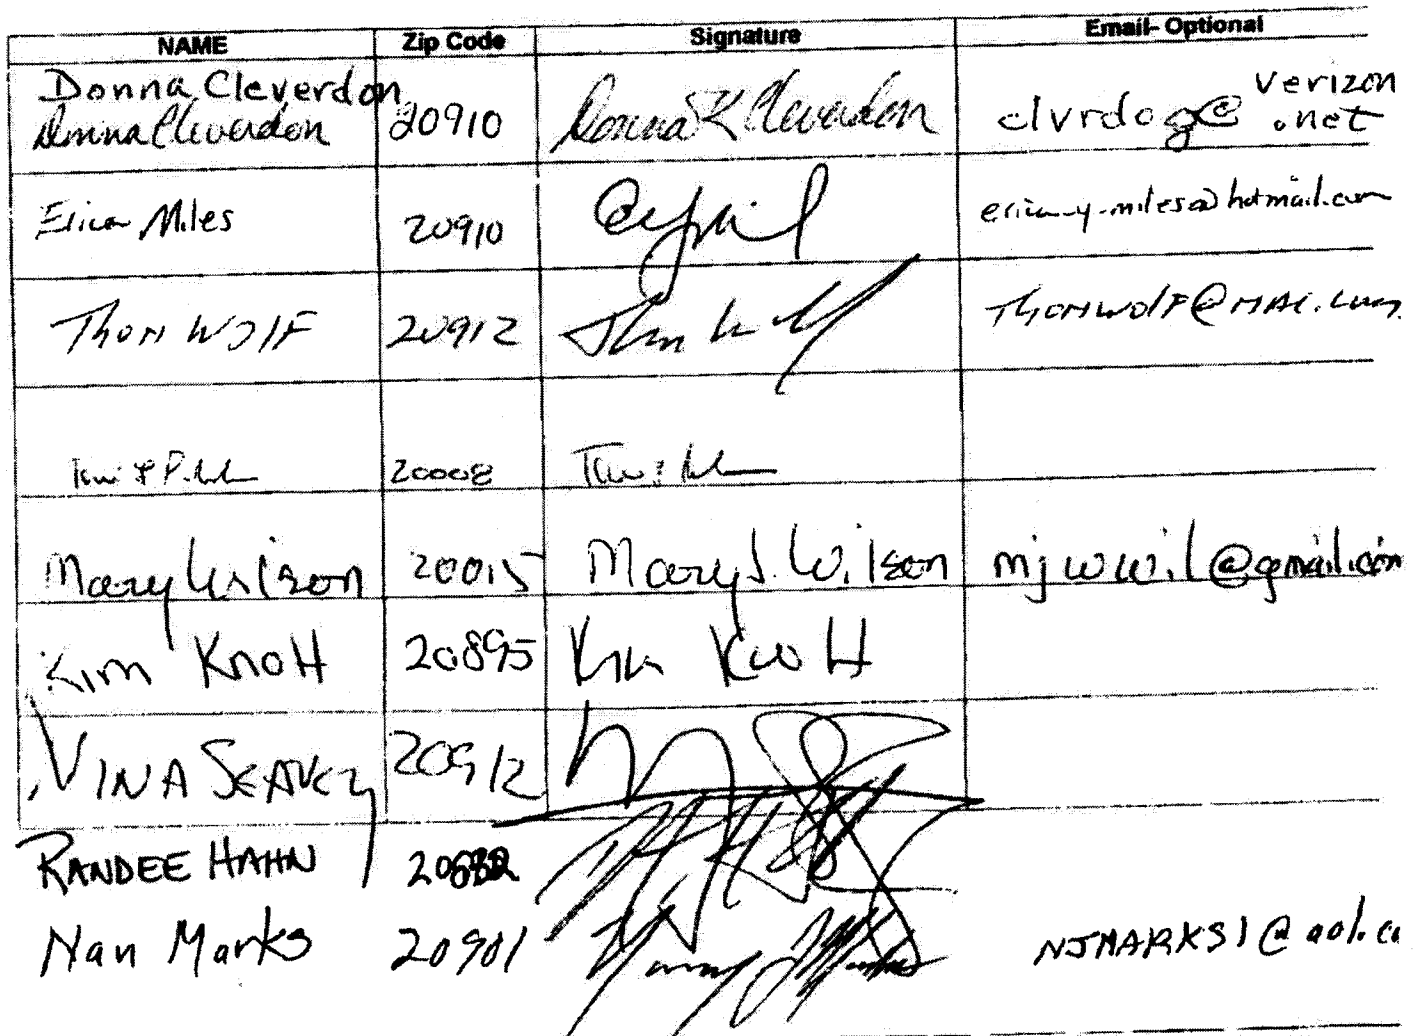 NAME Zip Code Signature Email- Optional
Donna Cleverdon verizon
Donna Cleverdon 20910 Donna K Cleverdon clvrdog@ .net
Erica Miles 20910 erica-y-miles@hotmail.com
Thom Wolf 20912 Thom Wolf Thomwolf@mac.com
20008
Mary Wilson 20015 Mary J. Wilson mjwwil@gmail.com
Kim Knott 20895 Kim Knott
VINA SEAVEY 20912
RANDEE HAHN
Nan Marks 20901 Nancy J Marks NJMARKS1@aol.co